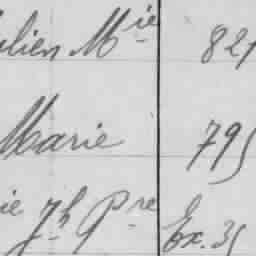 ulien Mie 821
Marie 795
ie Jh Pre Ex. 35